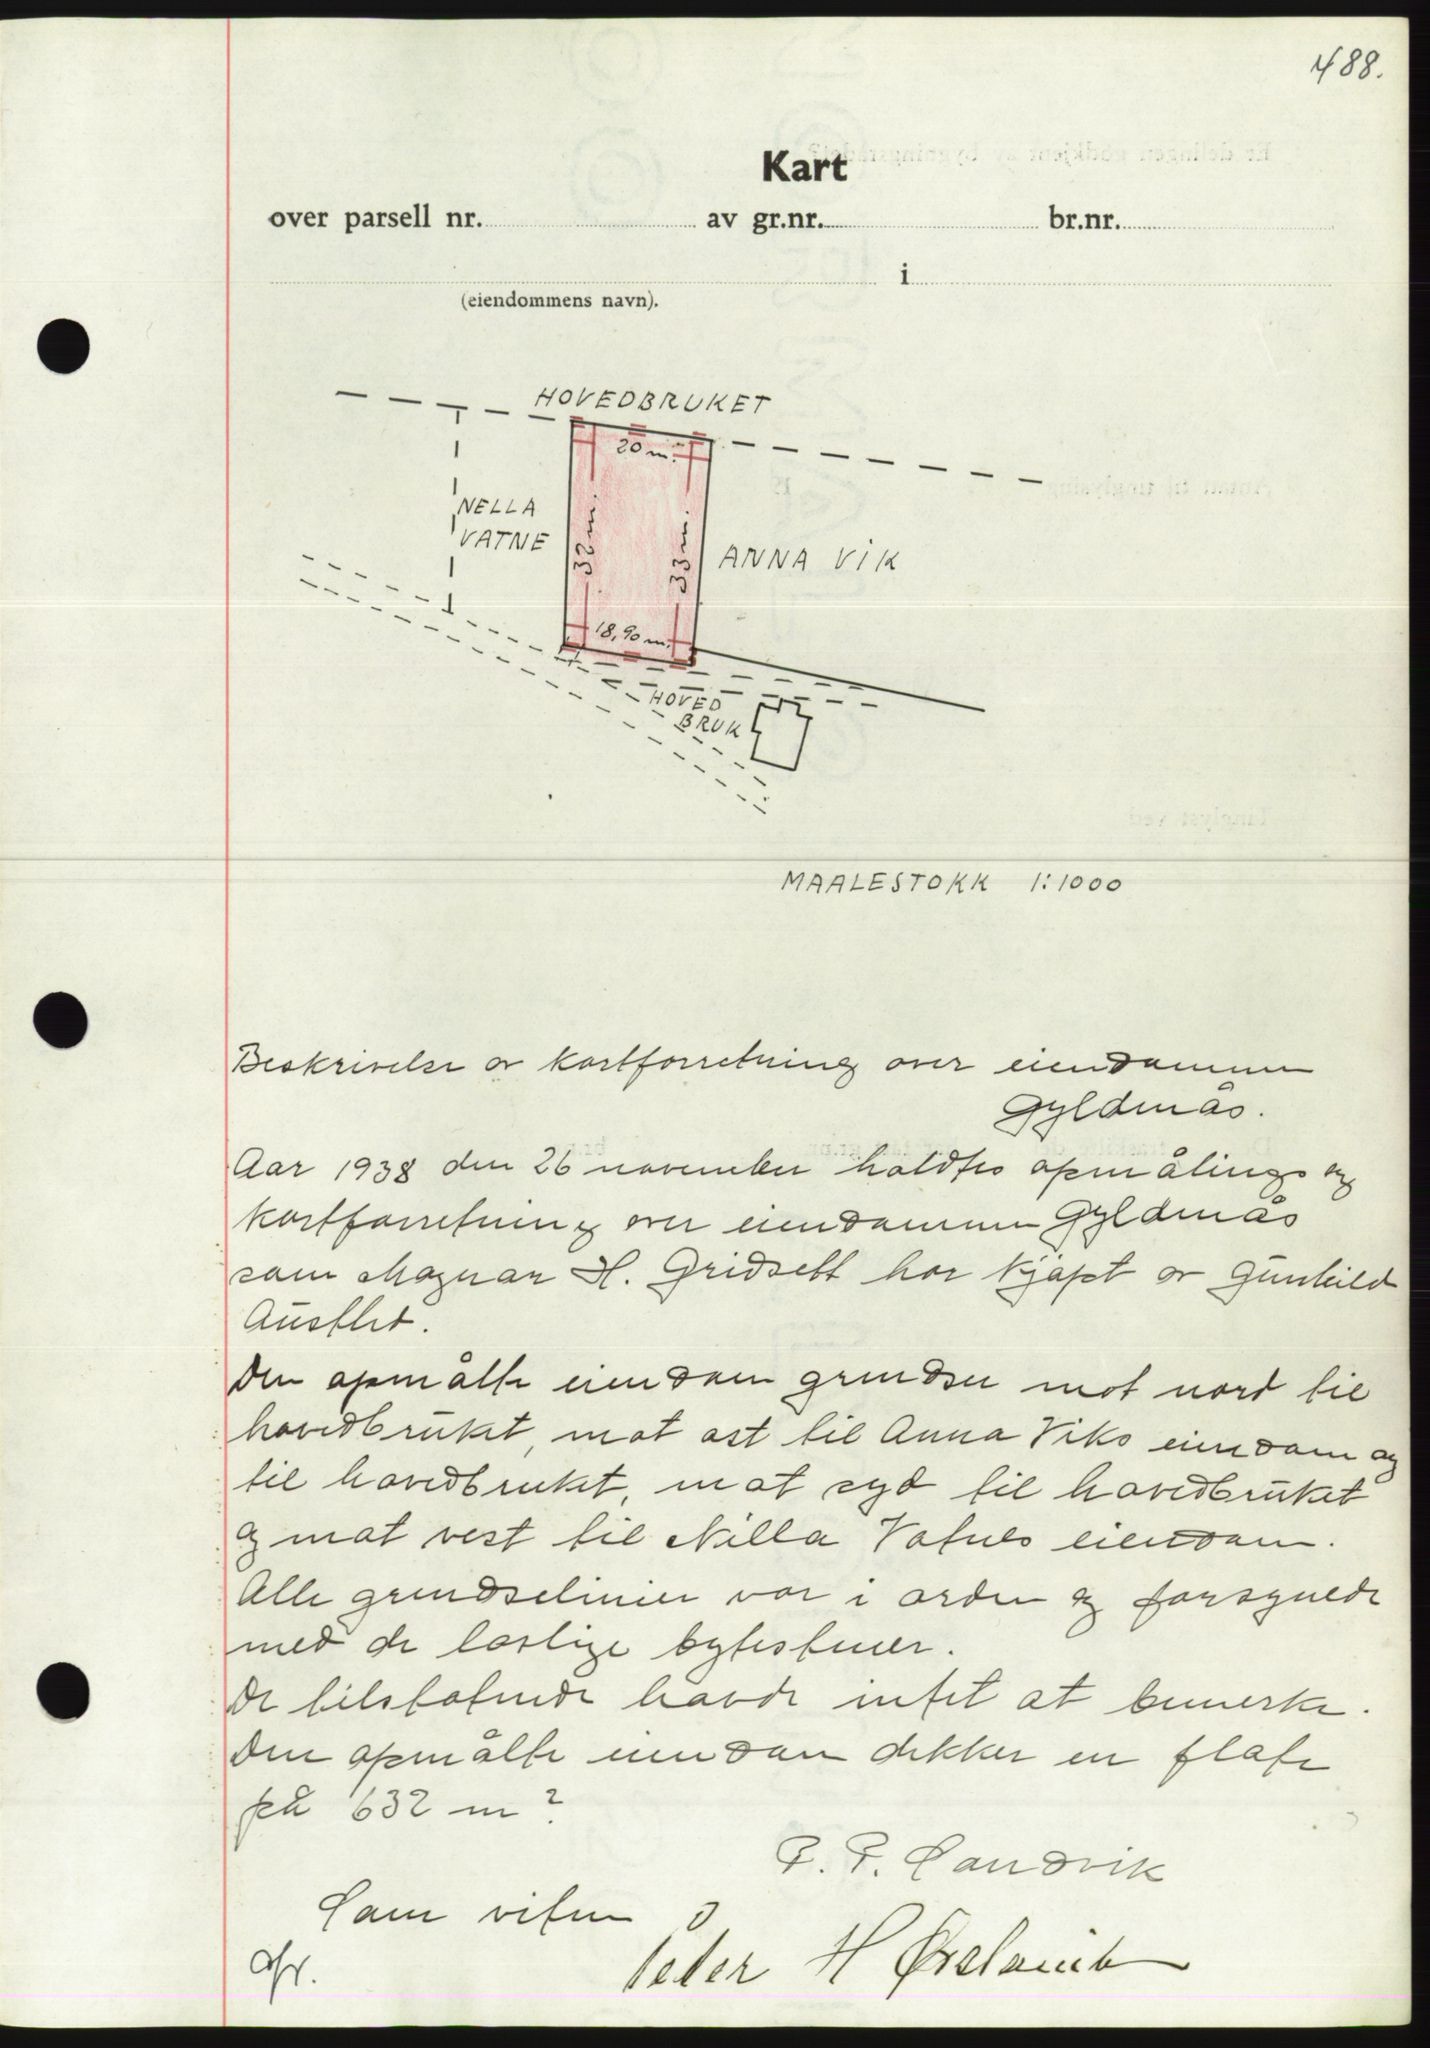 488.
Kart
over parsell nr. av gr.nr. br.nr.
i
(eiendommens navn).
HOVEDBRUKET
20 m.
NELLA
VATNE
32 m.
33 m.
ANNA VIK
18,90 m.
HOVED
BRUK
MAALESTOKK 1:1000
Beskrivelse av kartforretning over eiendommen
Gyldmås.
Aar 1938 den 26 november holdtes opmålings og
kartforretning over eiendommen Gyldmås
som Magnar H. Gridsett har kjøpt av Gunhild
Austlid.
Den opmålte eiendom grendser mot nord til
hovedbruket, mot øst til Anna Viks eiendom og
til hovedbruket, mot syd til hovedbruket
og mot vest til Nella Vatnes eiendom.
Alle grendselinier var i orden og forsynede
med de lovlige bytestener.
De tilstøtende havde intet at bemerke.
Den opmålte eiendom dekker en flate
på 632 m²
P. P. Landvik
Som vitne
Peder H Ørslavik